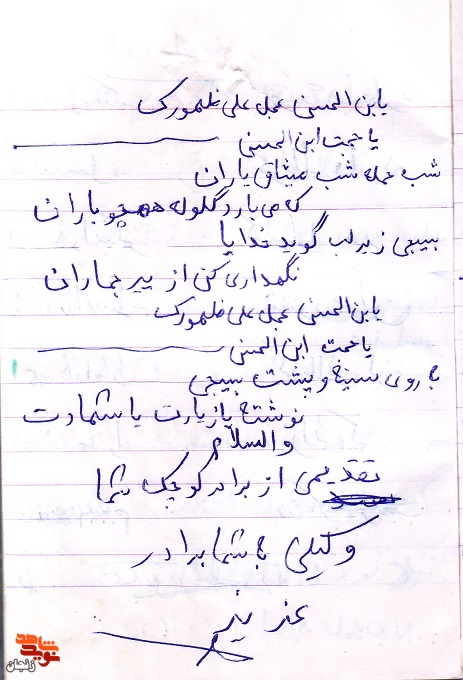 یابن الحسن عجل علی ظهورک
یا حجت ابن الحسن
شب حمله شب میثاق یاران
که می بارد گلوله همچو باران
بسیجی زیر لب گوید خدایا
نگهداری کن از پیر جماران
یابن الحسن عجل علی ظهورک
یا حجت ابن الحسن
به روی سینه و پشت بسیجی
نوشته یا زیارت یا شهادت
والسلام
تقدیمی از برادر کوچک شما
وکیلی به شما برادر
عزیز
نوید شاهد
زنجان